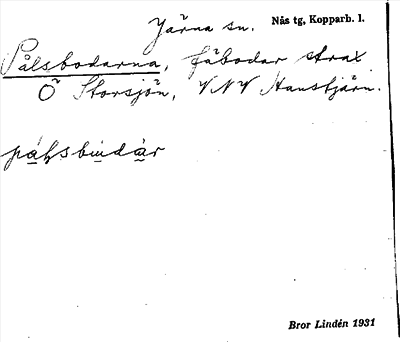 Järna sn. Nås tg, Kopparb. l.
Pålsbodarna, fäbodar strax
Ö Storsjön, VNV Hanstjärn.
Bror Lindén 1931